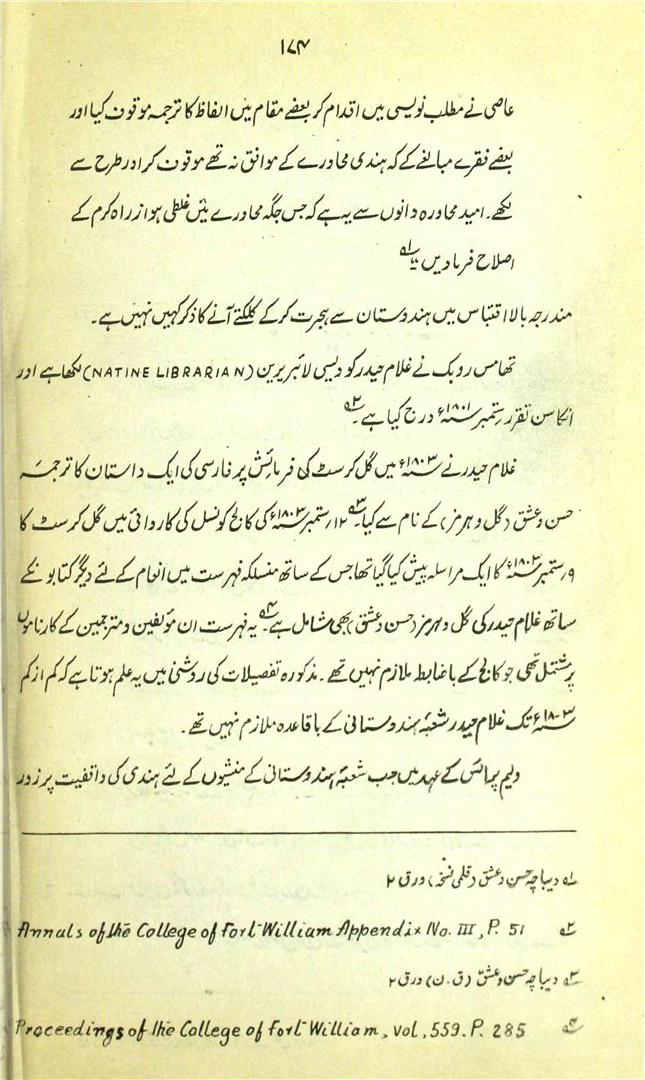 ۱۷۴
عاصی نے مطلب نویسی میں اقدام کر بعضے مقام میں الفاظ کا ترجمہ موقوف کیا اور
بعضے فقرے مبالغے کے کہ ہندی محاورے کے موافق نہ تھے موقوف کر اور طرح سے
لکھے۔ امید محاورہ دانوں سے یہ ہے کہ جس جگہ محاورے میں غلطی ہو از راہ کرم کے
اصلاح فرمادیں۔ ۱ھ
مندرجہ بالا اقتباس میں ہندوستان سے ہجرت کر کے کلکتے آنے کا ذکر کہیں نہیں ہے۔
تھامس روبک نے غلام حیدر کو دیسی لائبریرین (NATINE LIBRARIAN) لکھا ہے اور
انکا سن تقرر ستمبر ۱۸۰۱ء درج کیا ہے۔ ۲ھ
غلام حیدر نے ۱۸۰۳ء میں گل کرسٹ کی فرمائش پر فارسی کی ایک داستان کا ترجمہ
حسن و عشق (گل و ہرمز) کے نام سے کیا۔ ۳ھ ۱۲؍ ستمبر ۱۸۰۳ء کی کالج کونسل کی کاروائی میں گل کرسٹ کا
۹؍ ستمبر ۱۸۰۳ء کا ایک مراسلہ پیش کیا گیا تھا جس کے ساتھ منسلکہ فہرست میں انعام کے لئے دیگر کتابو نکے
ساتھ غلام حیدر کی گل و ہرمز (حسن و عشق) بھی شامل ہے۔ ۴ھ یہ فہرست ان مؤلفین و مترجمین کے کارناموں
پر مشتمل تھی جو کالج کے باضابطہ ملازم نہیں تھے۔ مذکورہ تفصیلات کی روشنی میں یہ علم ہوتا ہے کہ کم از کم
۱۸۰۳ء تک غلام حیدر شعبۂ ہندوستانی کے باقاعدہ ملازم نہیں تھے۔
ولیم پرائس کے عہد میں جب شعبۂ ہندوستانی کے منشیوں کے لئے ہندی کی واقفیت پر زور
۱ھ دیباچہ حسن و عشق (قلمی نسخہ) ورق ۲
۲ھ Annals of the College of Fort William Appendix No. III, P. 51
۳ھ دیباچہ حسن و عشق (ق۔ن) ورق ۲
۴ھ Proceedings of the College of Fort William, vol, 559. P. 285